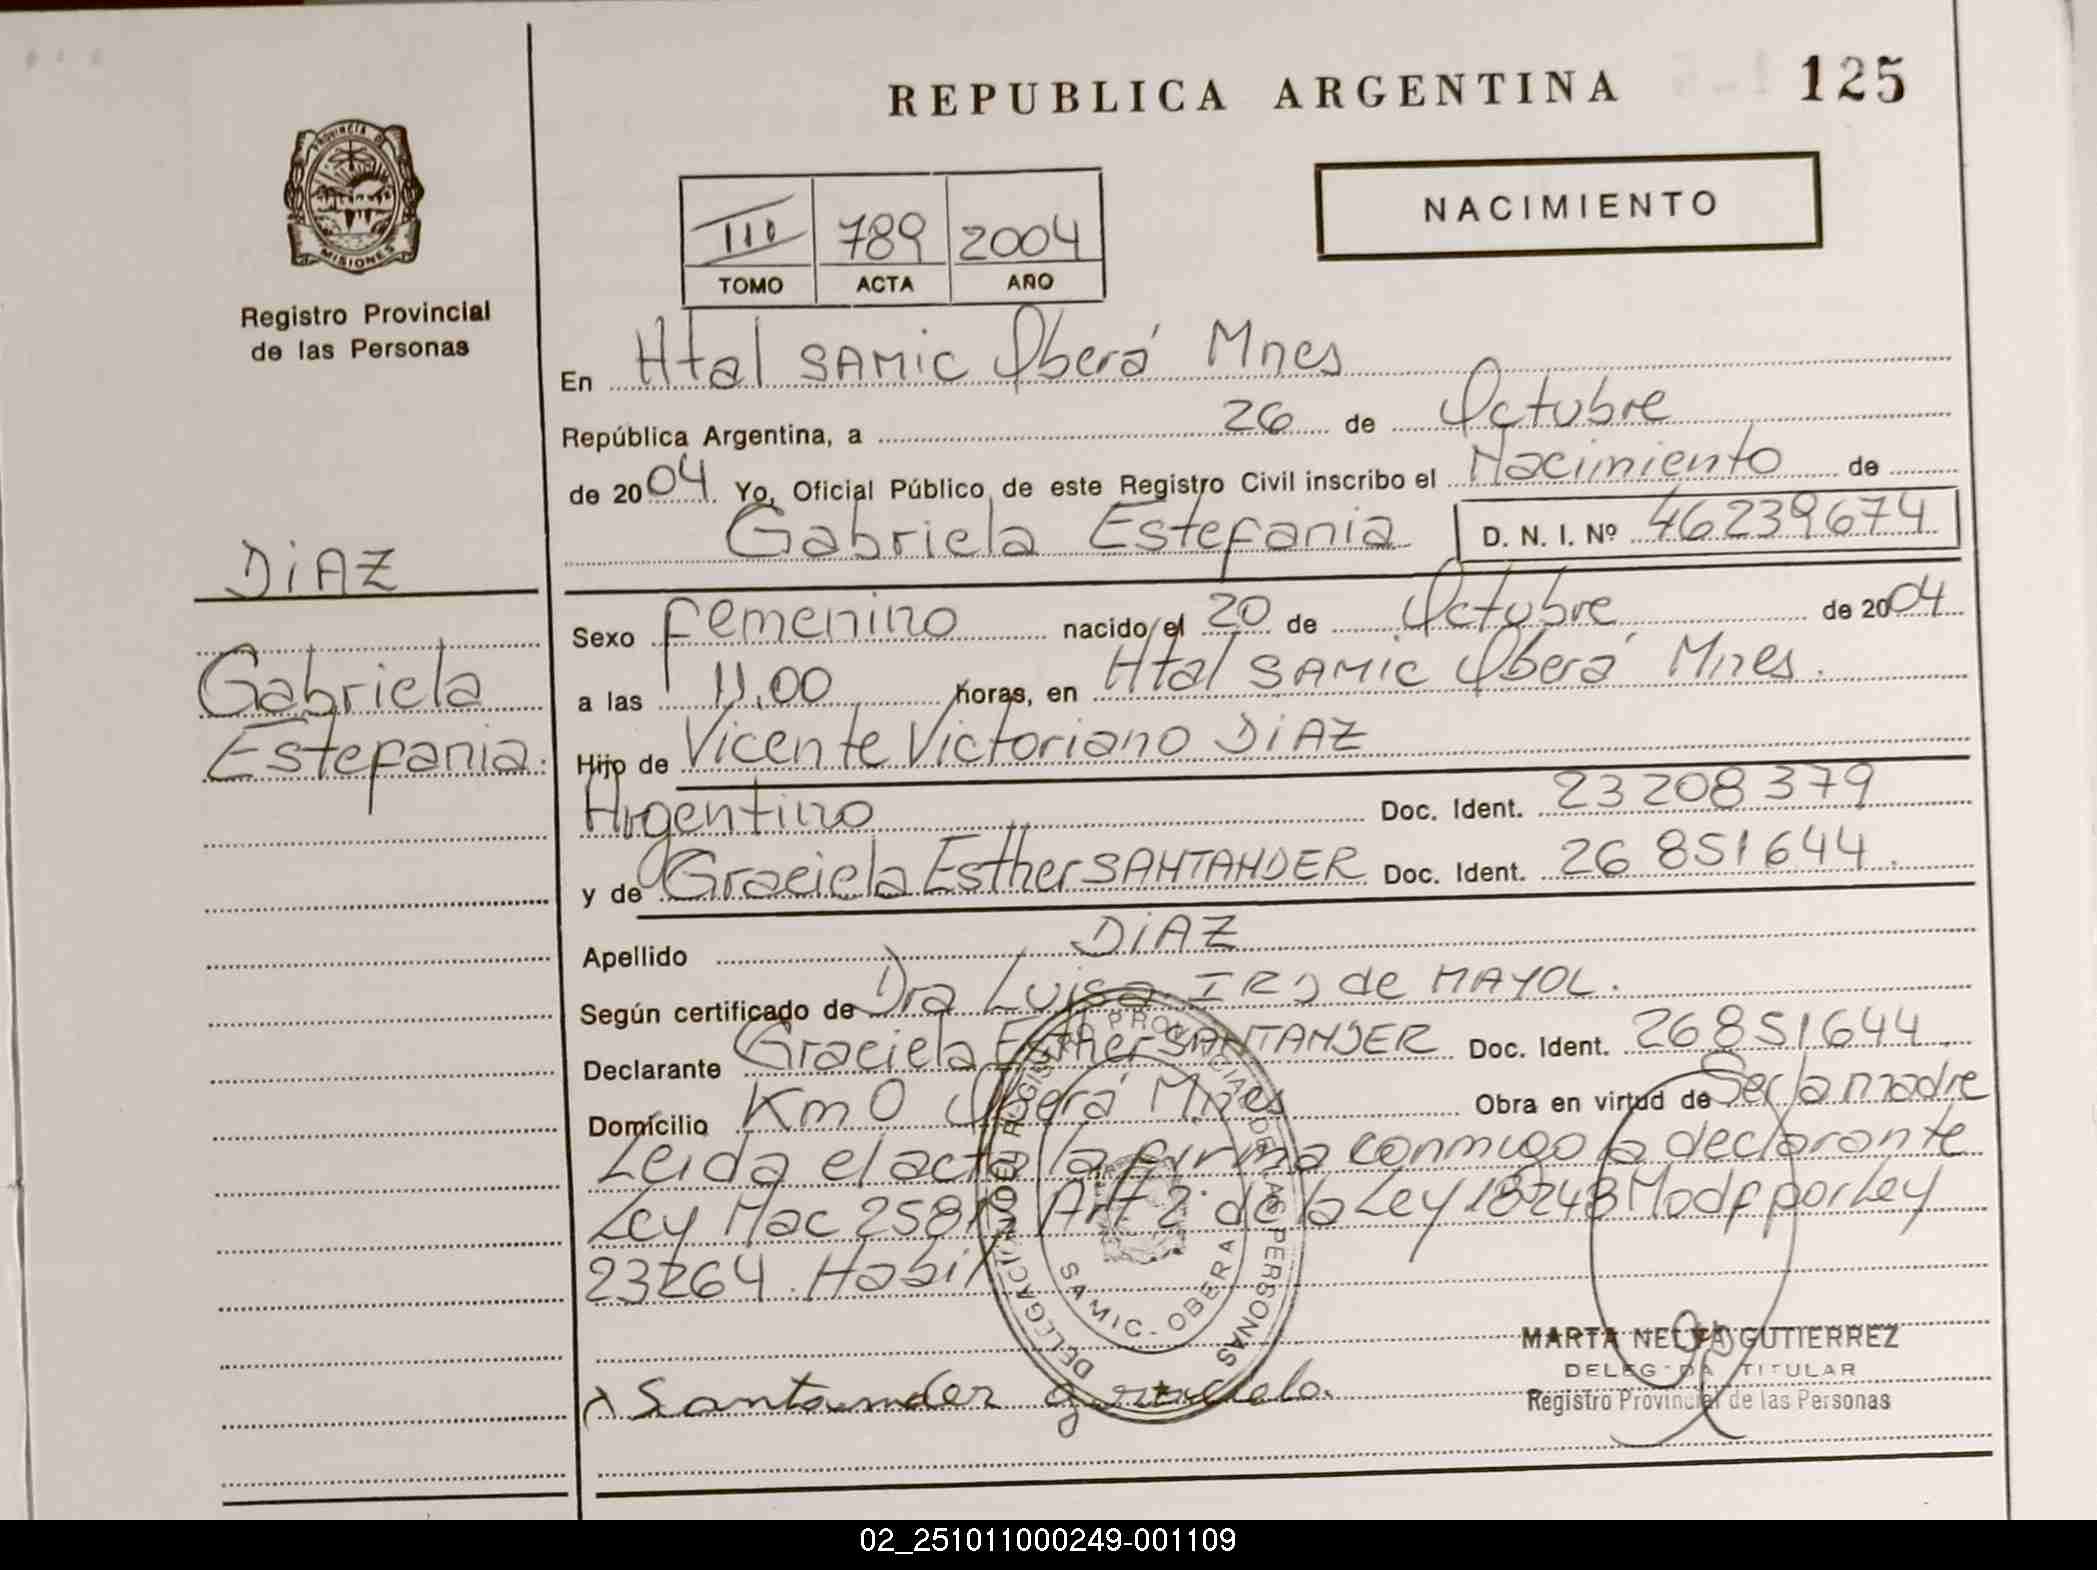 REPUBLICA ARGENTINA 125
PROVINCIA DE
MISIONES
Registro Provincial
de las Personas
NACIMIENTO
III 789 2004
TOMO ACTA AÑO
En Htal SAMIC Oberá Mnes
República Argentina, a 26 de Octubre
de 2004 Yo, Oficial Público de este Registro Civil inscribo el Nacimiento de
Gabriela Estefania D. N. I. Nº 46239674
DiAZ
Gabriela
Estefania.
Sexo Femenino nacido el 20 de Octubre de 2004
a las 11,00 horas, en Htal SAMIC Oberá Mnes.
Hijo de Vicente Victoriano DiAZ
Argentino Doc. Ident. 23 208 379
y de Graciela Esther SANTANDER Doc. Ident. 26 851644.
Apellido DiAZ
Según certificado de Dra Luisa de MAYOL.
Declarante Graciela Esther SANTANDER Doc. Ident. 26851644
Domicilio Km 0 Oberá Mnes Obra en virtud de Ser la madre
Leida el acta la firma conmigo la declarante
Ley Nac Art 2 de la Ley 18248 Modf por Ley
23264. Habil
DELEGACION DEL REGISTRO PROVINCIAL DE LAS PERSONAS
SAMIC - OBERA
MARTA GUTIERREZ
DELEGADA TITULAR
Registro Provincial de las Personas
Santander graciela.
02_251011000249-001109